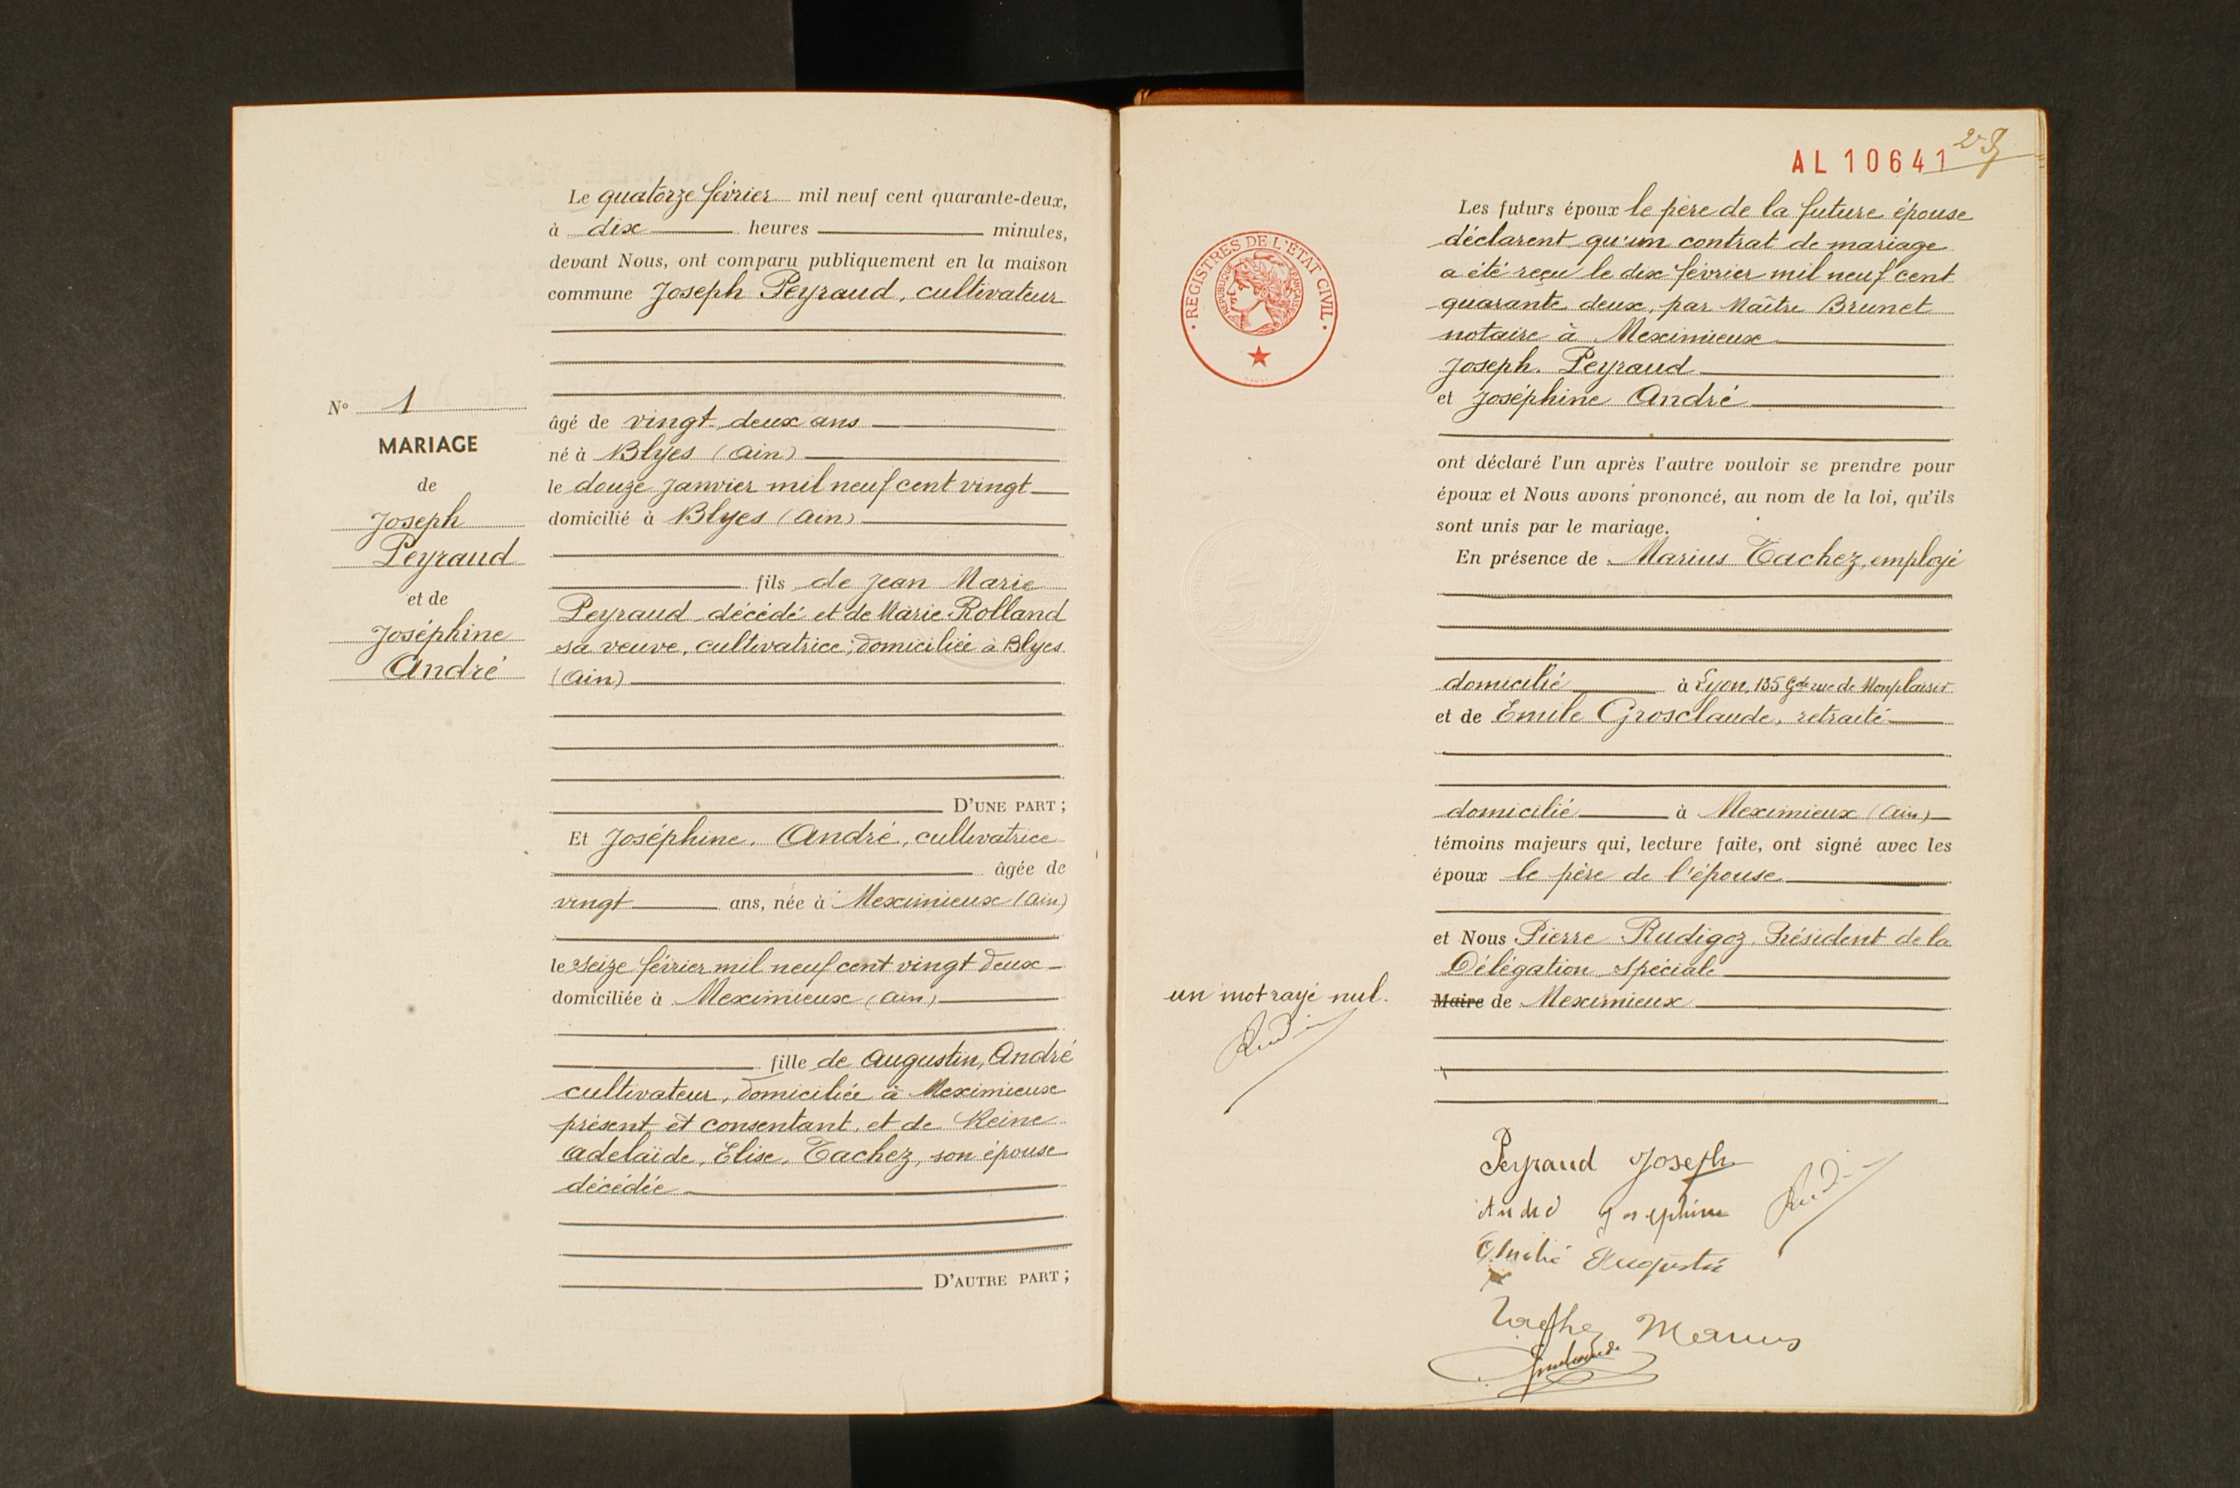 Le quatorze février mil neuf cent quarante-deux,
à dix heures minutes,
devant Nous, ont comparu publiquement en la maison
commune Joseph Peyraud, cultivateur
âgé de vingt-deux ans
né à Blyes (Ain)
le douze janvier mil neuf cent vingt
domicilié à Blyes (Ain)
fils de Jean Marie
Peyraud décédé et de Marie Rolland
sa veuve, cultivatrice, domiciliée à Blyes
(Ain)
D'UNE PART ;
Et Joséphine, André, cultivatrice
âgée de
vingt ans, née à Meximieux (Ain)
le seize février mil neuf cent vingt deux
domiciliée à Meximieux (Ain)
fille de Augustin, André
cultivateur, domiciliée à Meximieux
présent et consentant, et de Reine
Adelaïde, Elise, Tachez, son épouse
décédée
D'AUTRE PART ;
N° 1
MARIAGE
de
Joseph
Peyraud
et de
Joséphine
André
AL 10641
REGISTRES DE L'ETAT CIVIL
REPUBLIQUE FRANÇAISE
Les futurs époux le père de la future épouse
déclarent qu'un contrat de mariage
a été reçu le dix février mil neuf cent
quarante deux, par Maître Brunet
notaire à Meximieux
Joseph. Peyraud
et Joséphine André
ont déclaré l'un après l'autre vouloir se prendre pour
époux et Nous avons prononcé, au nom de la loi, qu'ils
sont unis par le mariage.
En présence de Marius Tachez, employé
domicilié à Lyon, 135 Gde rue de Monplaisir
et de Emile Grosclaude, retraité
domicilié à Meximieux (Ain)
témoins majeurs qui, lecture faite, ont signé avec les
époux le père de l'épouse
et Nous Pierre Rudigoz Président de la
Délégation spéciale
Maire de Meximieux
un mot rayé nul.
Peyraud Joseph
André Joséphine
Augustin
Tachez Marius